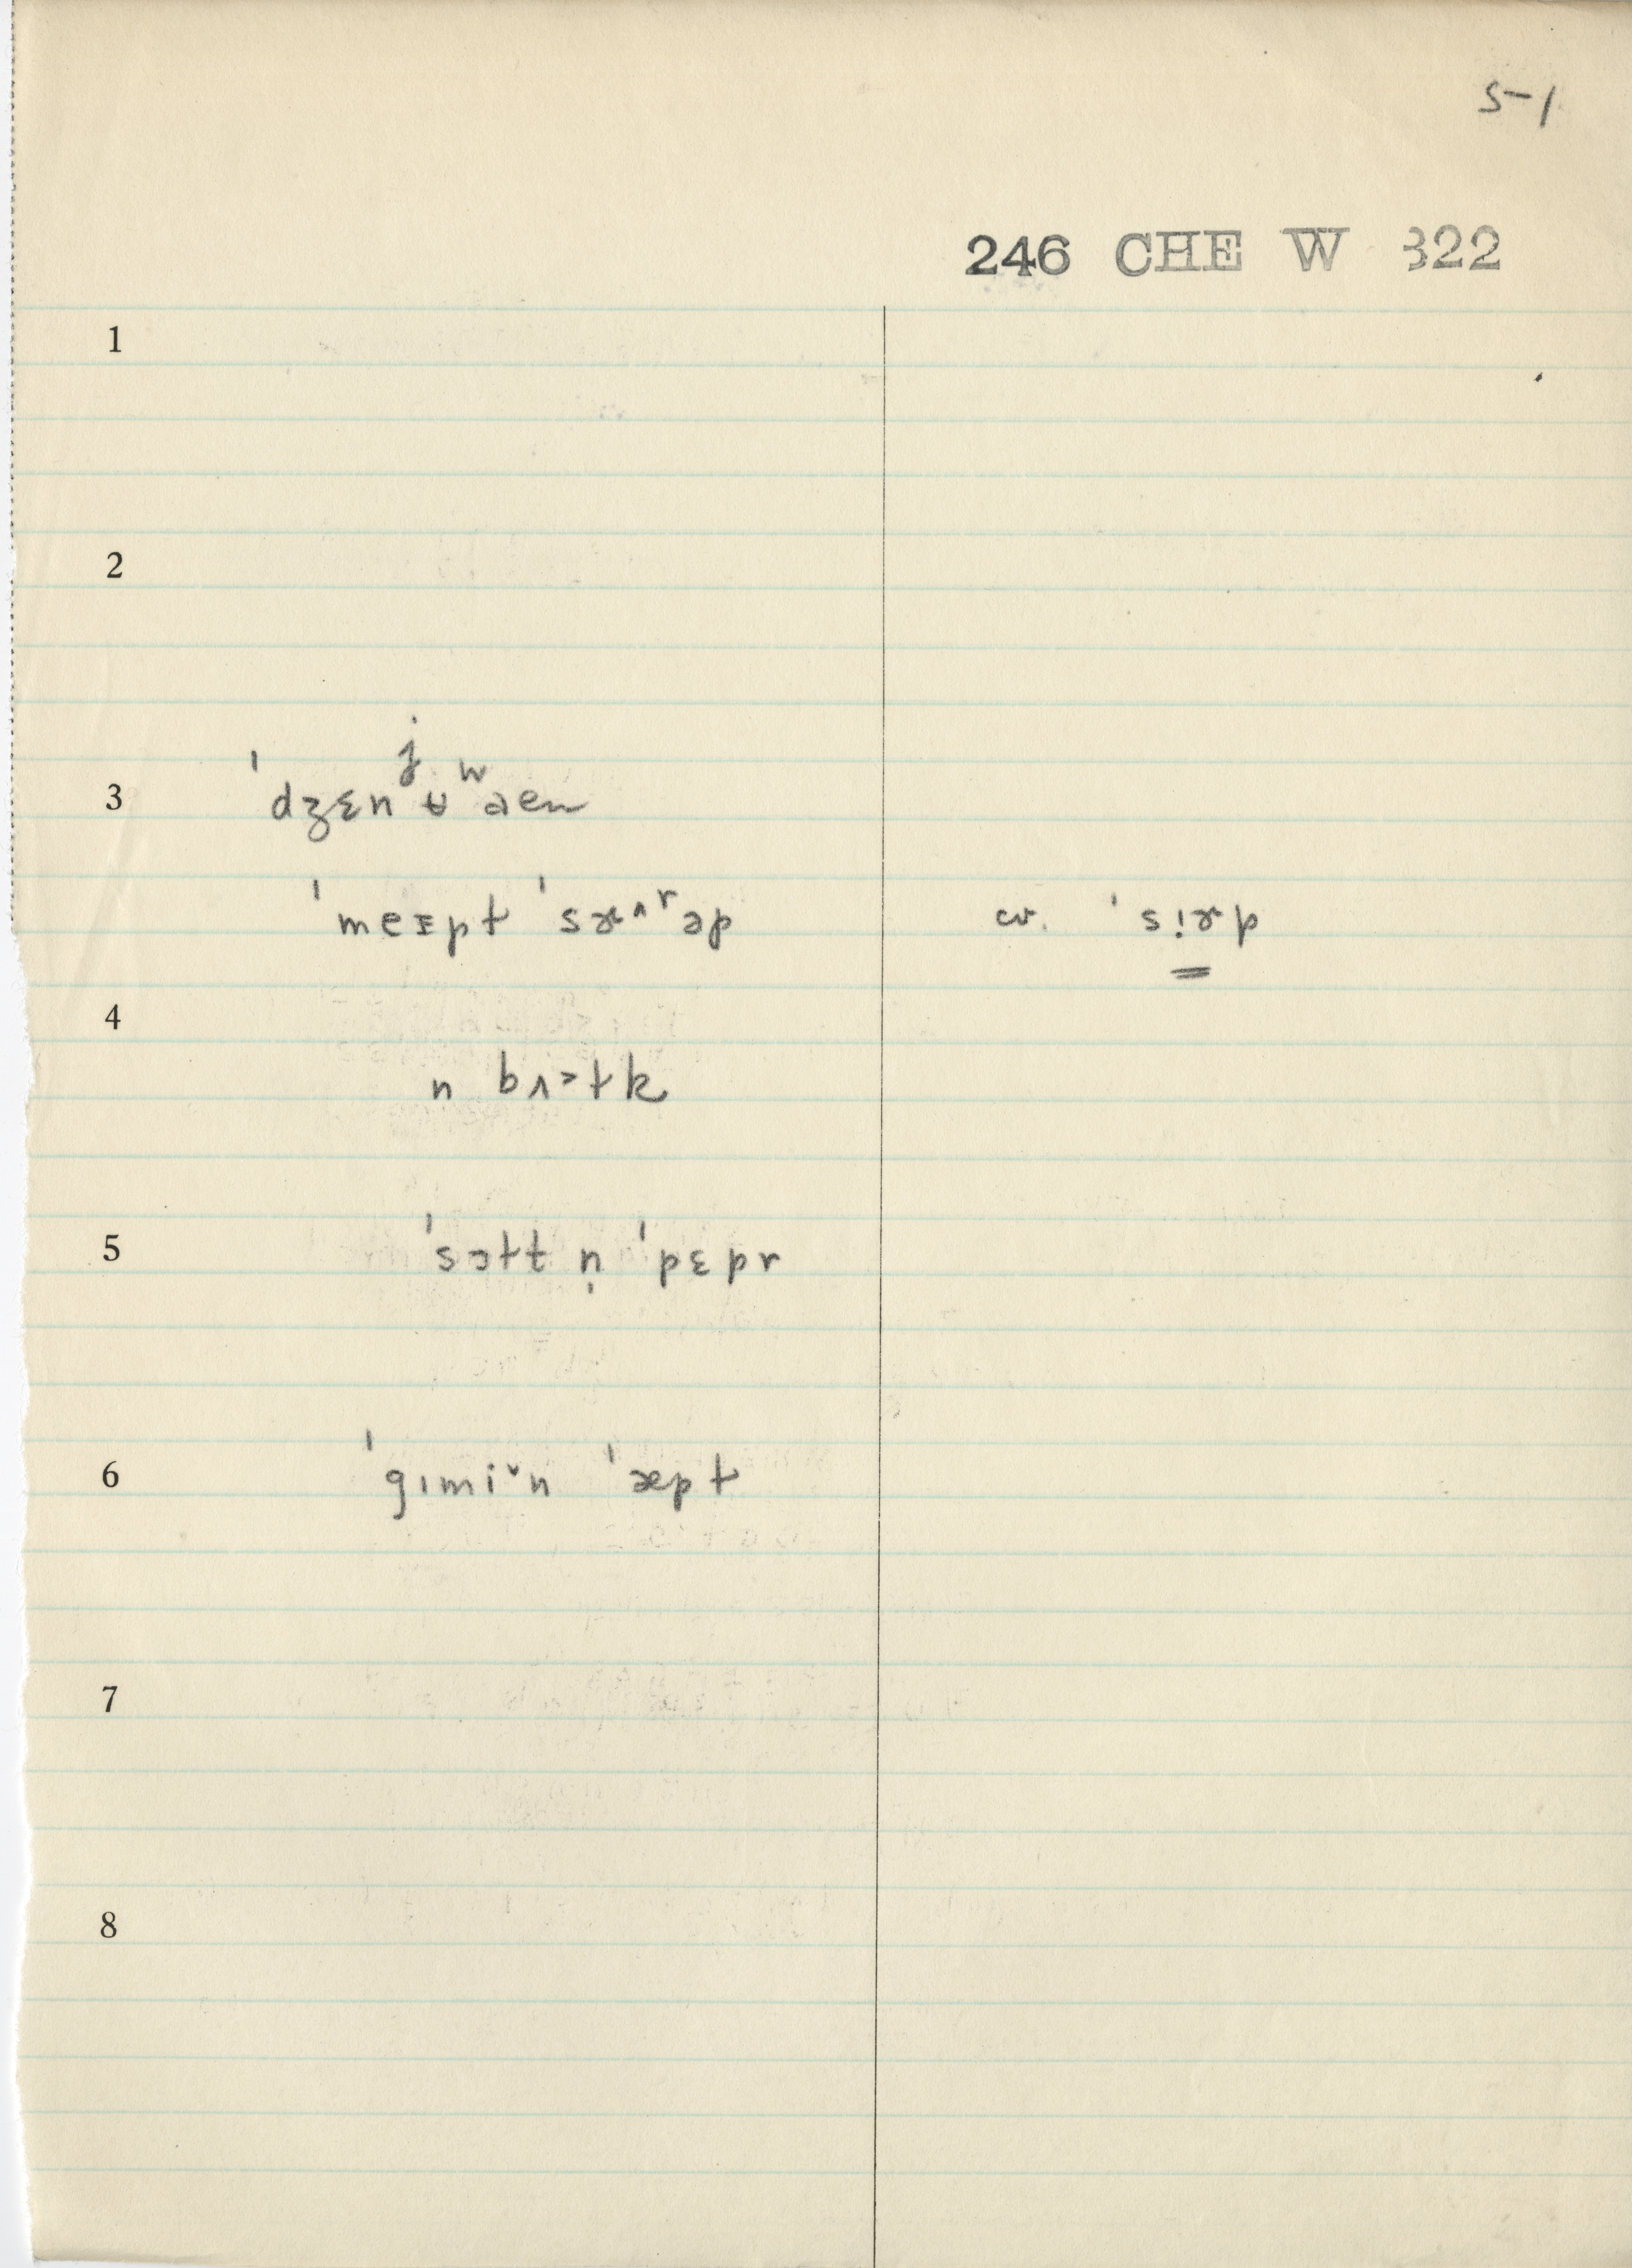 5-1
246 CHE W 322
1
2
3 ˈdʒɛnʲʉʷəen
ˈmeɪpt ˈsæ^ɚəp cv. ˈsi̳ɚp
4
n bʌ>tk
5 ˈsɔtt n̩ ˈpɛpr
6 ˈgɪmiˇn ˈæpt
7
8